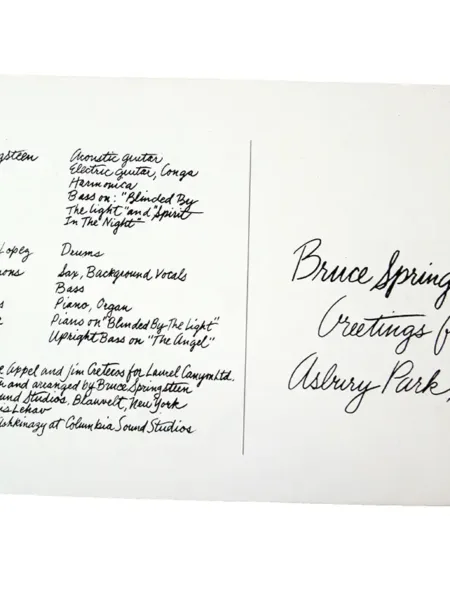 gsteen Acoustic guitar
Electric guitar, Conga
Harmonica
Bass on: "Blinded By
The Light" and "Spirit
In The Night"
Lopez Drums
ons Sax, Background Vocals
Bass
s Piano, Organ
e Piano on "Blinded By The Light"
Upright Bass on "The Angel"
e Appel and Jim Cretecos for Laurel Canyon Ltd.
n and arranged by Bruce Springsteen
und Studios, Blauvelt, New York
is Lehav
Ashkinazy at Columbia Sound Studios
Bruce Spring
Greetings f
Asbury Park,